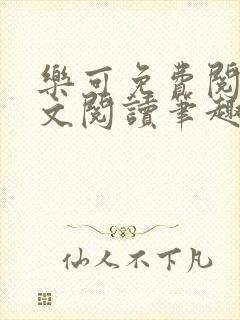 樂可免費閱
文閱讀筆趣
仙人不下凡